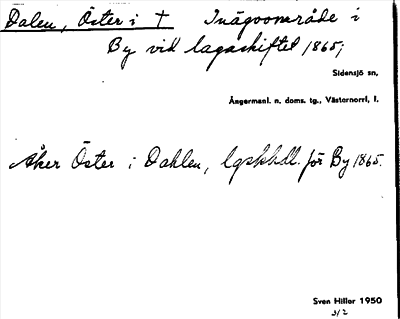 Dalen, Öster i † Inägoområde i
By vid lagaskiftet 1865;
Sidensjö sn,
Ångermanl. n. doms. tg., Västernorrl, l.
Åker Öster i Dahlen, lgskhdl. för By 1865.
Sven Hiller 1950
3/2